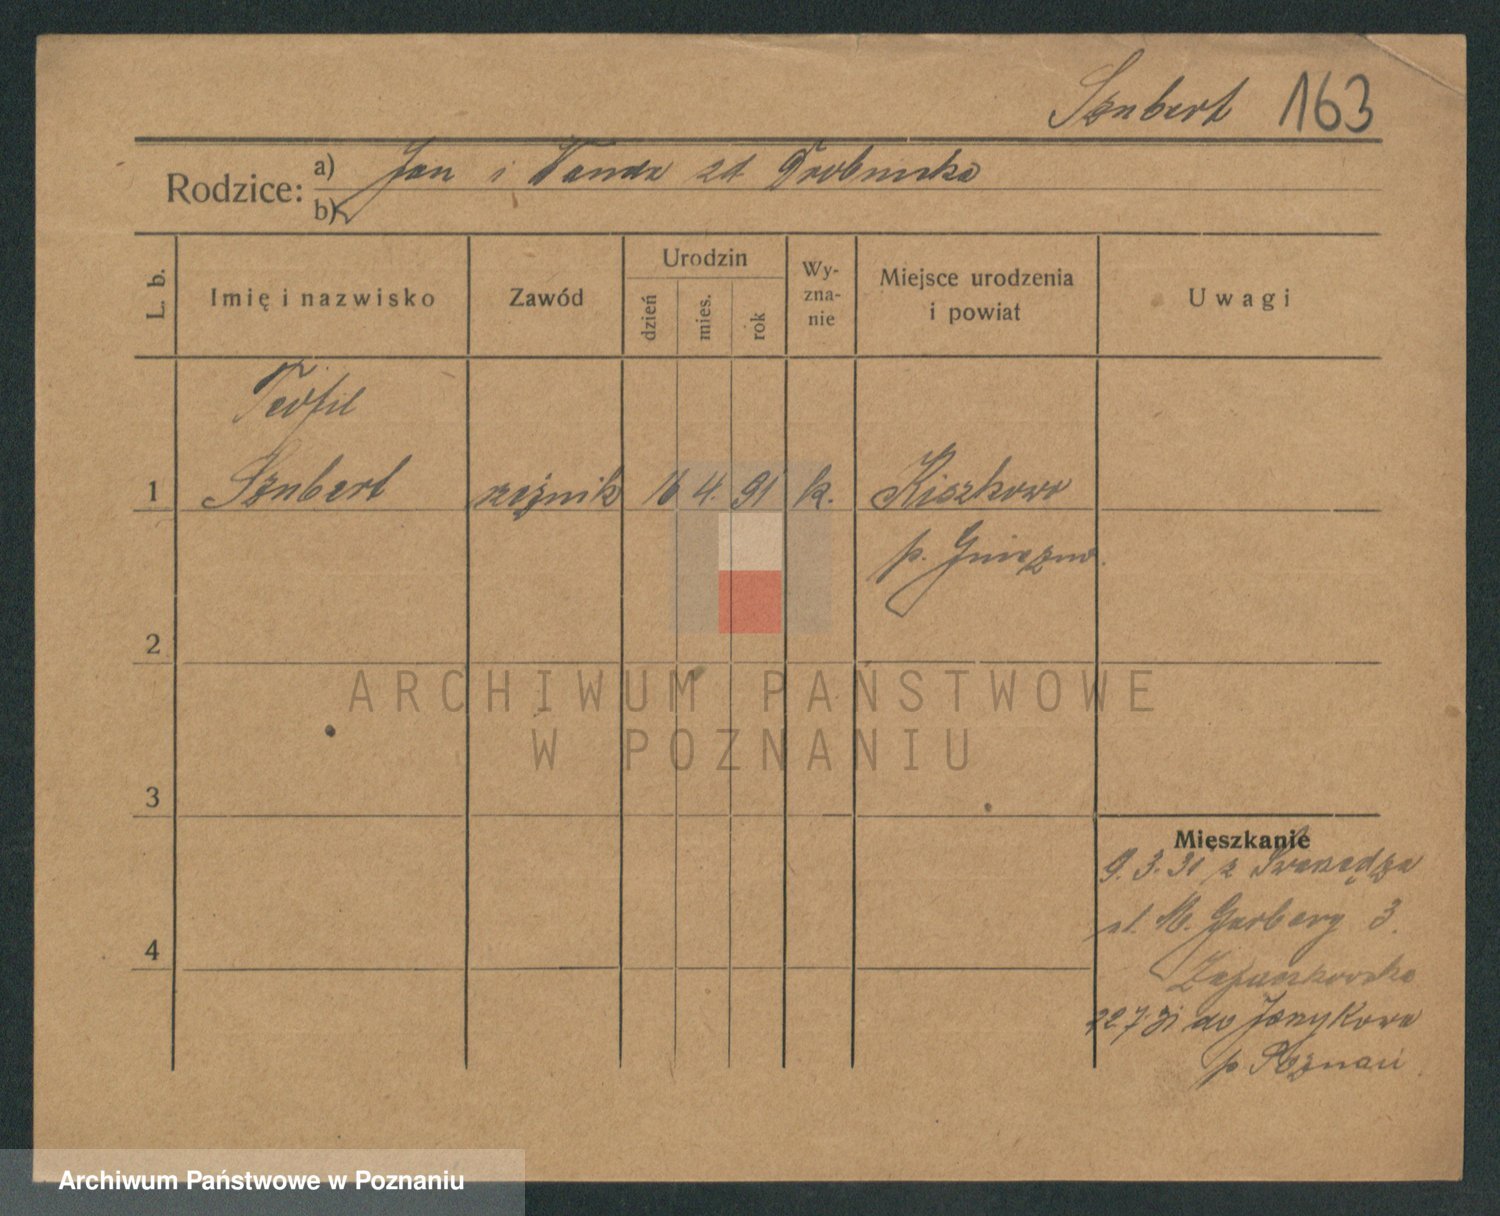 Sznbert 163
Rodzice:
a) Jan i Wanda zd Drobnicka
b)
L. b.
Imię i nazwisko
Zawód
Urodzin
dzień
mies.
rok
Wy-
zna-
nie
Miejsce urodzenia
i powiat
Uwagi
Teofil
1 Sznbert rzeźnik 16 4. 91 k. Kiszkowo
p. Gniezno.
2
ARCHIWUM PAŃSTWOWE
W POZNANIU
3
Mieszkanie
9. 3. 31 z Swarzędza
ul. M. Garbary 3.
4
22.7.31 do Janikowa
p. Poznań
Archiwum Państwowe w Poznaniu